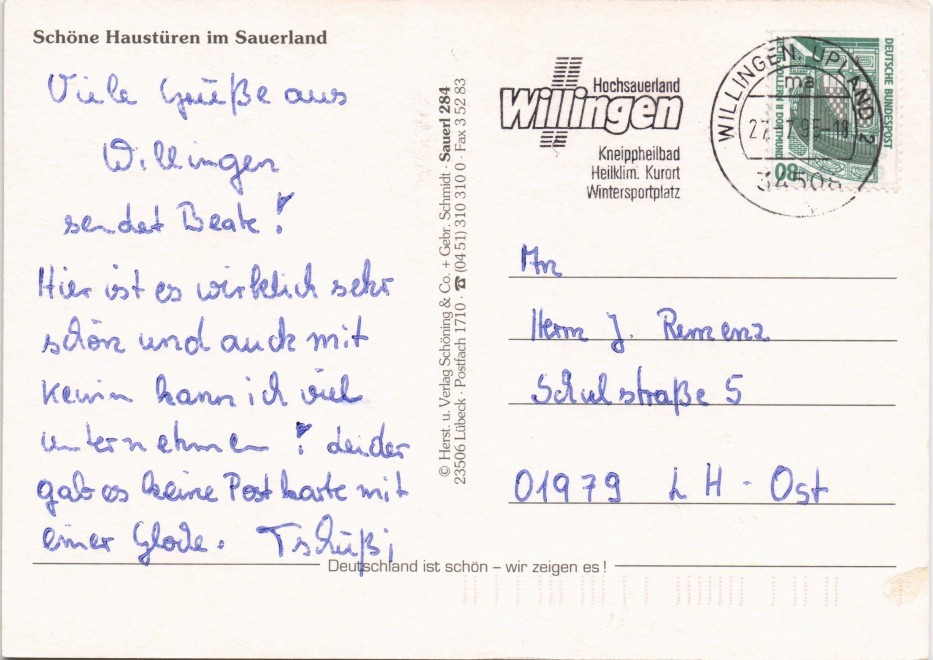 Schöne Haustüren im Sauerland
Viele Grüße aus
Willingen
sendet Beate!
Hier ist es wirklich sehr
schön und auch mit
Kevin kann ich viel
unternehmen! Leider
gab es keine Postkarte mit
einer Glocke. Tschüß!
© Herst. u. Verlag Schöning & Co. + Gebr. Schmidt · Sauerl 284
23506 Lübeck · Postfach 1710 · ☎ (04 51) 310 310 0 · Fax 3 52 83
Hochsauerland
Willingen
Kneippheilbad
Heilklim. Kurort
Wintersportplatz
WILLINGEN, UPLAND 2
ma
34508
DEUTSCHE BUNDESPOST
ZECHE ZOLLERN II DORTMUND
80
An
Herrn J. Remenz
Schulstraße 5
01979 LH - Ost
Deutschland ist schön – wir zeigen es!